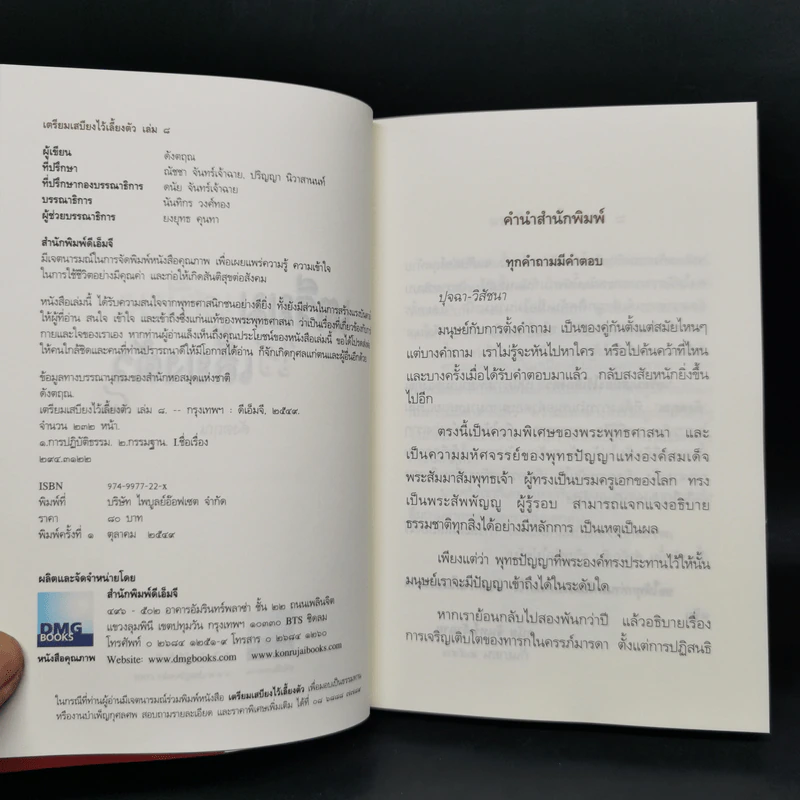 เตรียมเสบียงไว้เลี้ยงตัว เล่ม ๘
ผู้เขียน ดังตฤณ
ที่ปรึกษา ณัชชา จันทร์เจ้าฉาย, ปริญญา นิวาสานนท์
ที่ปรึกษากองบรรณาธิการ ดนัย จันทร์เจ้าฉาย
บรรณาธิการ นันทิกร วงศ์ทอง
ผู้ช่วยบรรณาธิการ ยงยุทธ คุนทา
สำนักพิมพ์ดีเอ็มจี
มีเจตนารมณ์ในการจัดพิมพ์หนังสือคุณภาพ เพื่อเผยแพร่ความรู้ ความเข้าใจ
ในการใช้ชีวิตอย่างมีคุณค่า และก่อให้เกิดสันติสุขต่อสังคม
หนังสือเล่มนี้ ได้รับความสนใจจากพุทธศาสนิกชนอย่างดียิ่ง ทั้งยังมีส่วนในการสร้างแรงบันดาล
ให้ผู้ที่อ่าน สนใจ เข้าใจ และเข้าถึงซึ่งแก่นแท้ของพระพุทธศาสนา ว่าเป็นเรื่องที่เกี่ยวข้องกับ
กายและใจของเราเอง หากท่านผู้อ่านเล็งเห็นถึงคุณประโยชน์ของหนังสือเล่มนี้ ขอได้โปรด
ให้คนใกล้ชิดและคนที่ท่านปรารถนาดีให้มีโอกาสได้อ่าน ก็จักเกิดกุศลแก่ตนและผู้อื่นอีกด้วย
ข้อมูลทางบรรณานุกรมของสำนักหอสมุดแห่งชาติ
ดังตฤณ.
เตรียมเสบียงไว้เลี้ยงตัว เล่ม ๘. -- กรุงเทพฯ : ดีเอ็มจี, ๒๕๔๙.
จำนวน ๒๓๒ หน้า.
๑.การปฏิบัติธรรม. ๒.กรรมฐาน. I.ชื่อเรื่อง
๒๙๔.๓๑๒๒
ISBN 974-9977-22-x
พิมพ์ที่ บริษัท ไพบูลย์อ๊อฟเซต จำกัด
ราคา ๘๐ บาท
พิมพ์ครั้งที่ ๑ ตุลาคม ๒๕๔๙
ผลิตและจัดจำหน่ายโดย
DMG
BOOKS
หนังสือคุณภาพ
สำนักพิมพ์ดีเอ็มจี
๔๙๖ - ๕๐๒ อาคารอัมรินทร์พลาซ่า ชั้น ๒๒ ถนนเพลินจิต
แขวงลุมพินี เขตปทุมวัน กรุงเทพฯ ๑๐๓๓๐ BTS ชิดลม
โทรศัพท์ ๐ ๒๖๘๔ ๑๒๕๑-๙ โทรสาร ๐ ๒๖๘๔ ๑๒๖๐
Website: www.dmgbooks.com www.konrujaibooks.com
ในกรณีที่ท่านผู้อ่านมีเจตนารมณ์ร่วมพิมพ์หนังสือ เตรียมเสบียงไว้เลี้ยงตัว เพื่อมอบเป็นธรรมทาน
หรืองานบำเพ็ญกุศลศพ สอบถามรายละเอียด และราคาพิเศษเพิ่มเติม ได้ที่
คำนำสำนักพิมพ์
ทุกคำถามมีคำตอบ
ปุจฉา-วิสัชนา
มนุษย์กับการตั้งคำถาม เป็นของคู่กันตั้งแต่สมัยไหนๆ
แต่บางคำถาม เราไม่รู้จะหันไปหาใคร หรือไปค้นคว้าที่ไหน
และบางครั้งเมื่อได้รับคำตอบมาแล้ว กลับสงสัยหนักยิ่งขึ้น
ไปอีก
ตรงนี้เป็นความพิเศษของพระพุทธศาสนา และ
เป็นความมหัศจรรย์ของพุทธปัญญาแห่งองค์สมเด็จ
พระสัมมาสัมพุทธเจ้า ผู้ทรงเป็นบรมครูเอกของโลก ทรง
เป็นพระสัพพัญญู ผู้รู้รอบ สามารถแจกแจงอธิบาย
ธรรมชาติทุกสิ่งได้อย่างมีหลักการ เป็นเหตุเป็นผล
เพียงแต่ว่า พุทธปัญญาที่พระองค์ทรงประทานไว้ให้นั้น
มนุษย์เราจะมีปัญญาเข้าถึงได้ในระดับใด
หากเราย้อนกลับไปสองพันกว่าปี แล้วอธิบายเรื่อง
การเจริญเติบโตของทารกในครรภ์มารดา ตั้งแต่การปฏิสนธิ